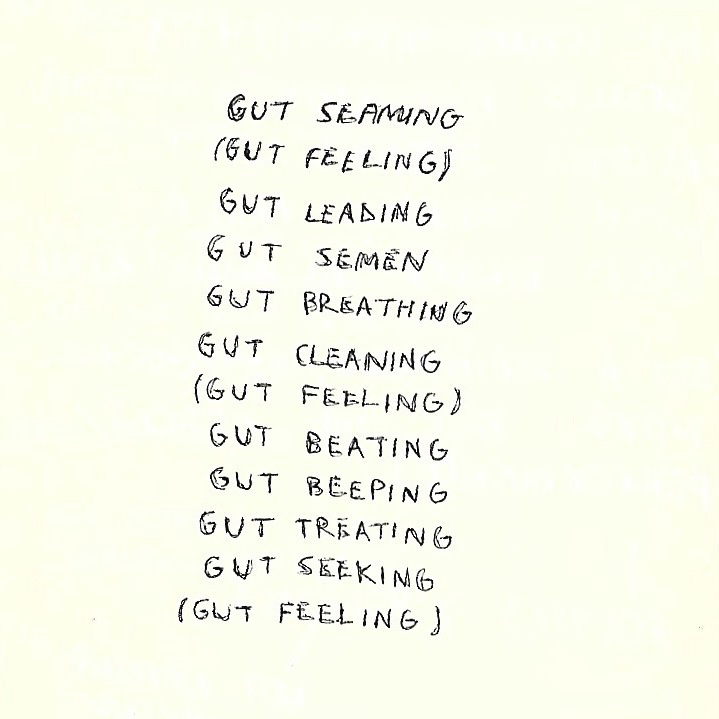 GUT SEAMING
(GUT FEELING)
GUT LEADING
GUT SEMEN
GUT BREATHING
GUT CLEANING
(GUT FEELING)
GUT BEATING
GUT BEEPING
GUT TREATING
GUT SEEKING
(GUT FEELING)